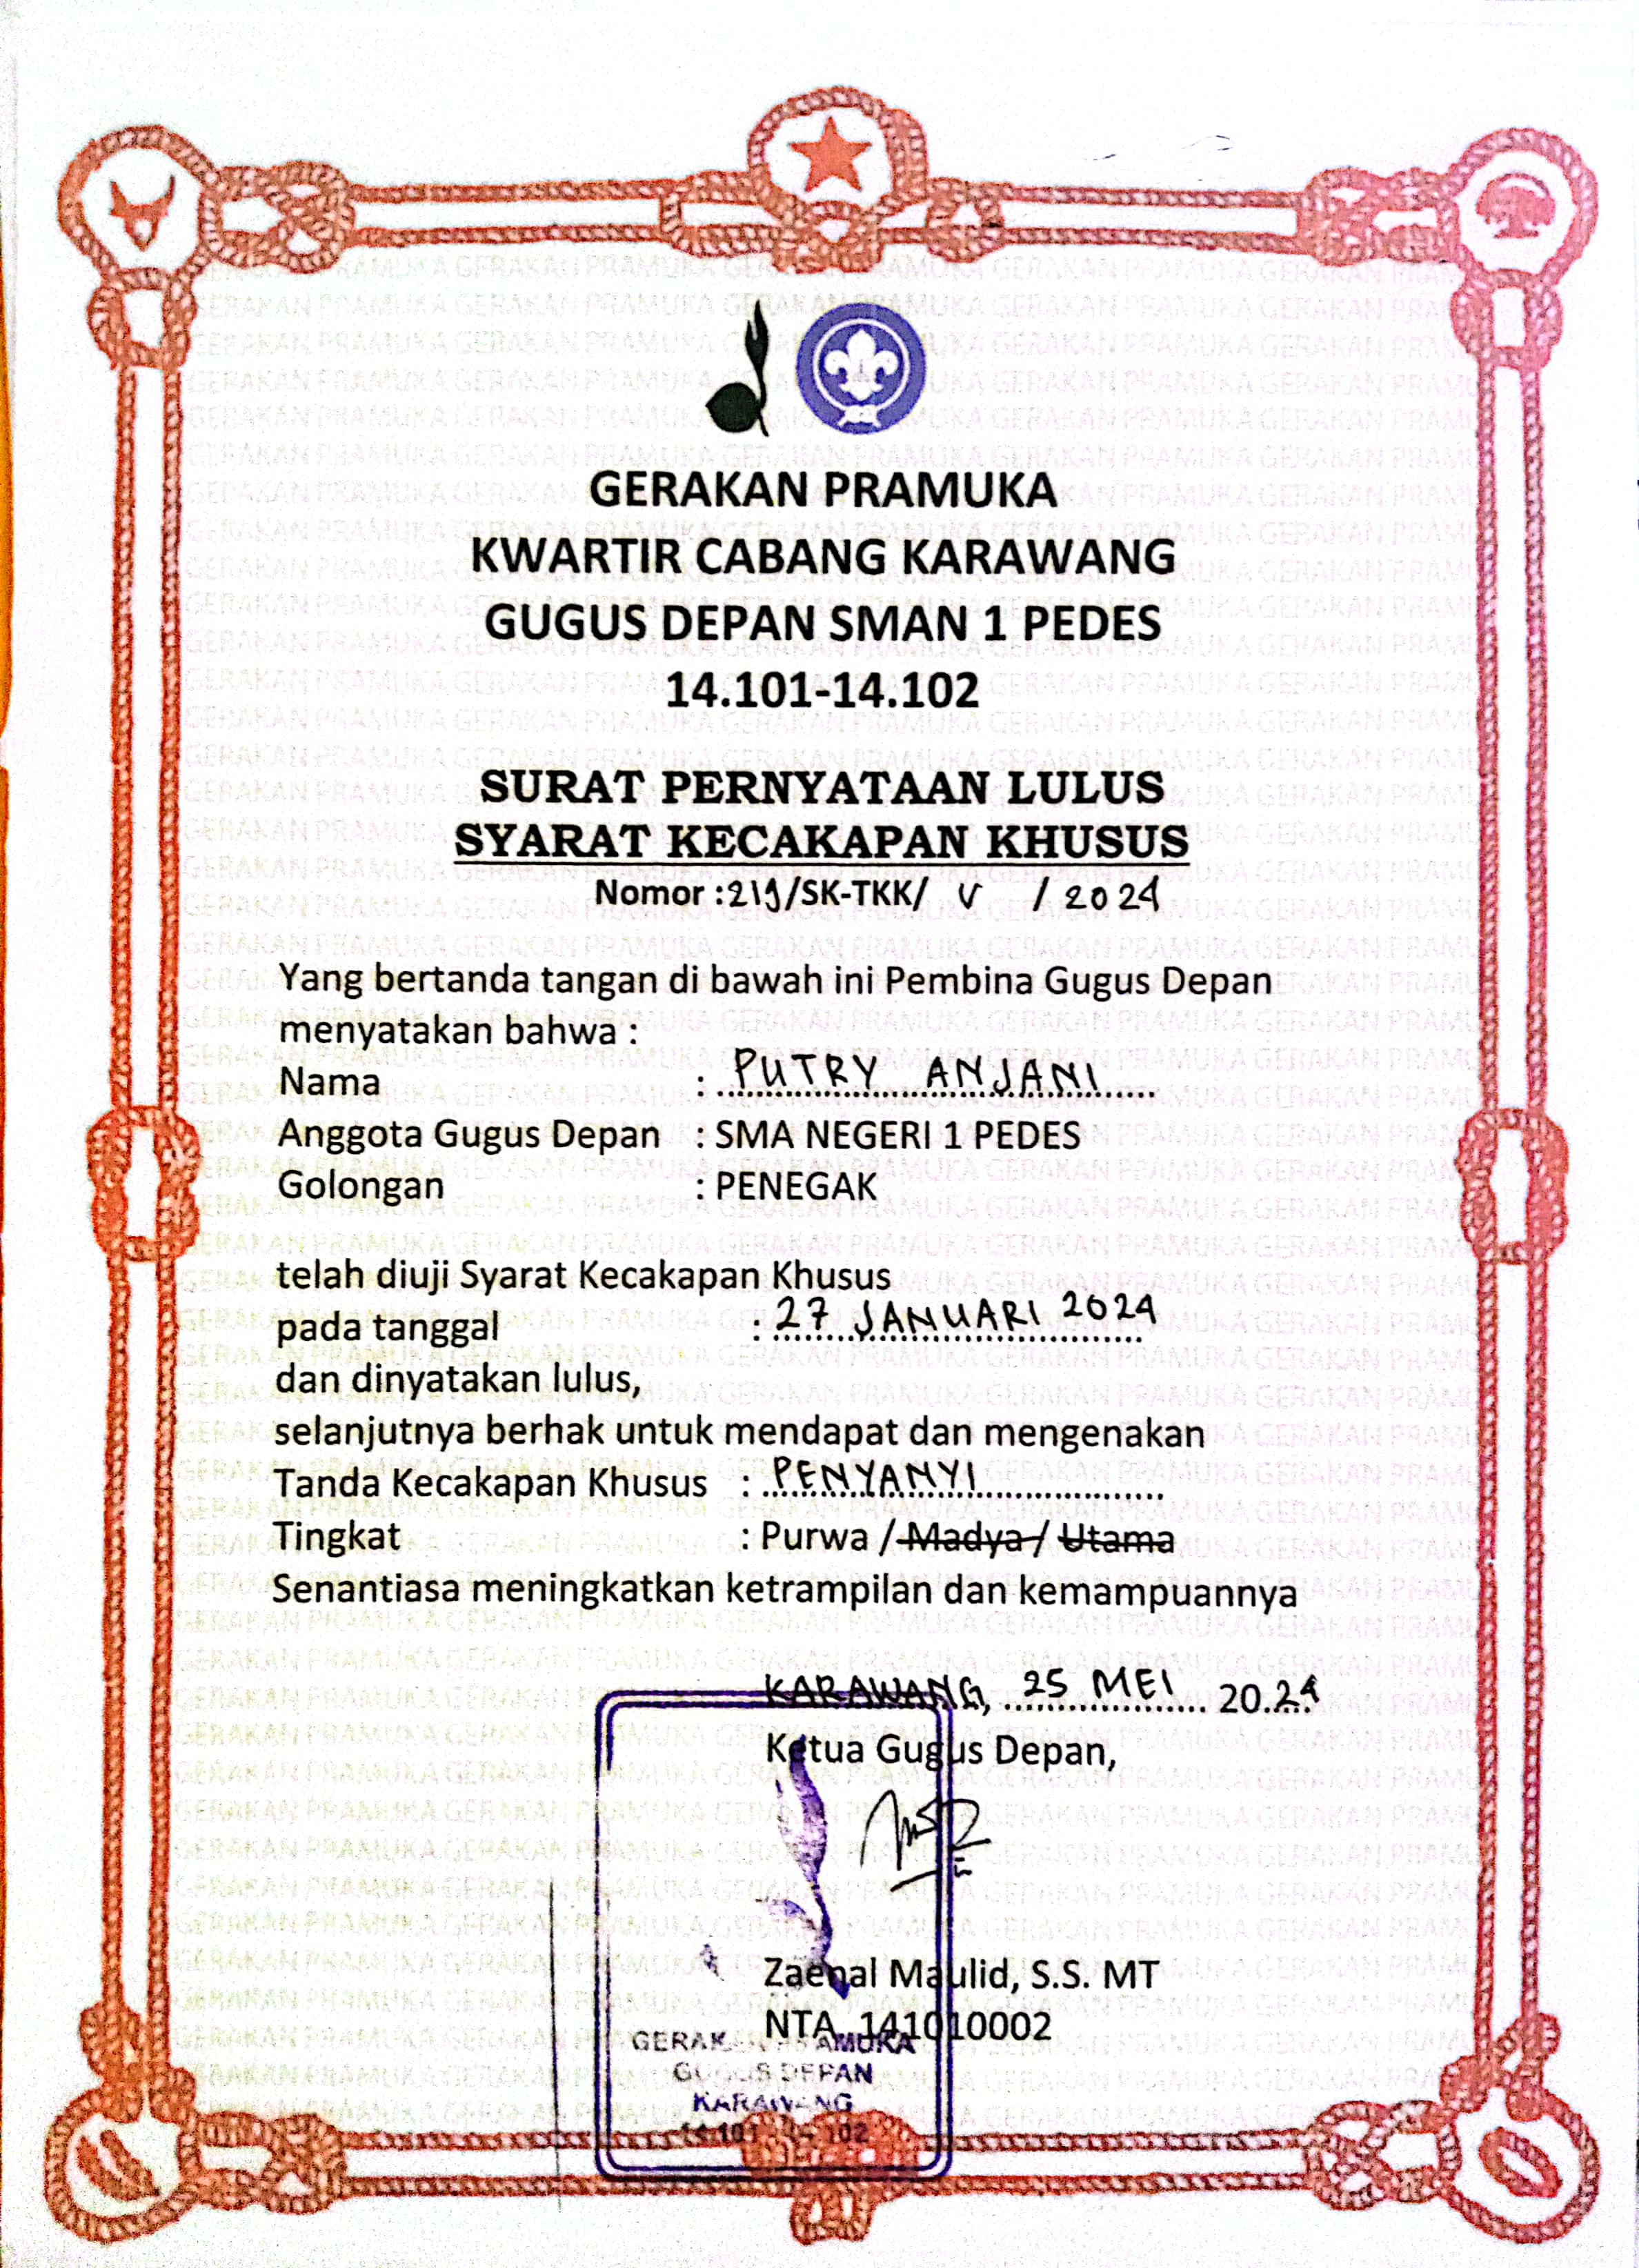 GERAKAN PRAMUKA
KWARTIR CABANG KARAWANG
GUGUS DEPAN SMAN 1 PEDES
14.101-14.102
SURAT PERNYATAAN LULUS
SYARAT KECAKAPAN KHUSUS
Nomor :219/SK-TKK/ V / 2024
Yang bertanda tangan di bawah ini Pembina Gugus Depan
menyatakan bahwa :
Nama : PUTRY ANJANI
Anggota Gugus Depan : SMA NEGERI 1 PEDES
Golongan : PENEGAK
telah diuji Syarat Kecakapan Khusus
pada tanggal : 27 JANUARI 2024
dan dinyatakan lulus,
selanjutnya berhak untuk mendapat dan mengenakan
Tanda Kecakapan Khusus : PENYANYI
Tingkat : Purwa / Madya / Utama
Senantiasa meningkatkan ketrampilan dan kemampuannya
KARAWANG, 25 MEI 2024
Ketua Gugus Depan,
Zaenal Maulid, S.S. MT
NTA. 141010002
GERAKAN PRAMUKA
GUGUS DEPAN
KARAWANG
14.101 - 14.102